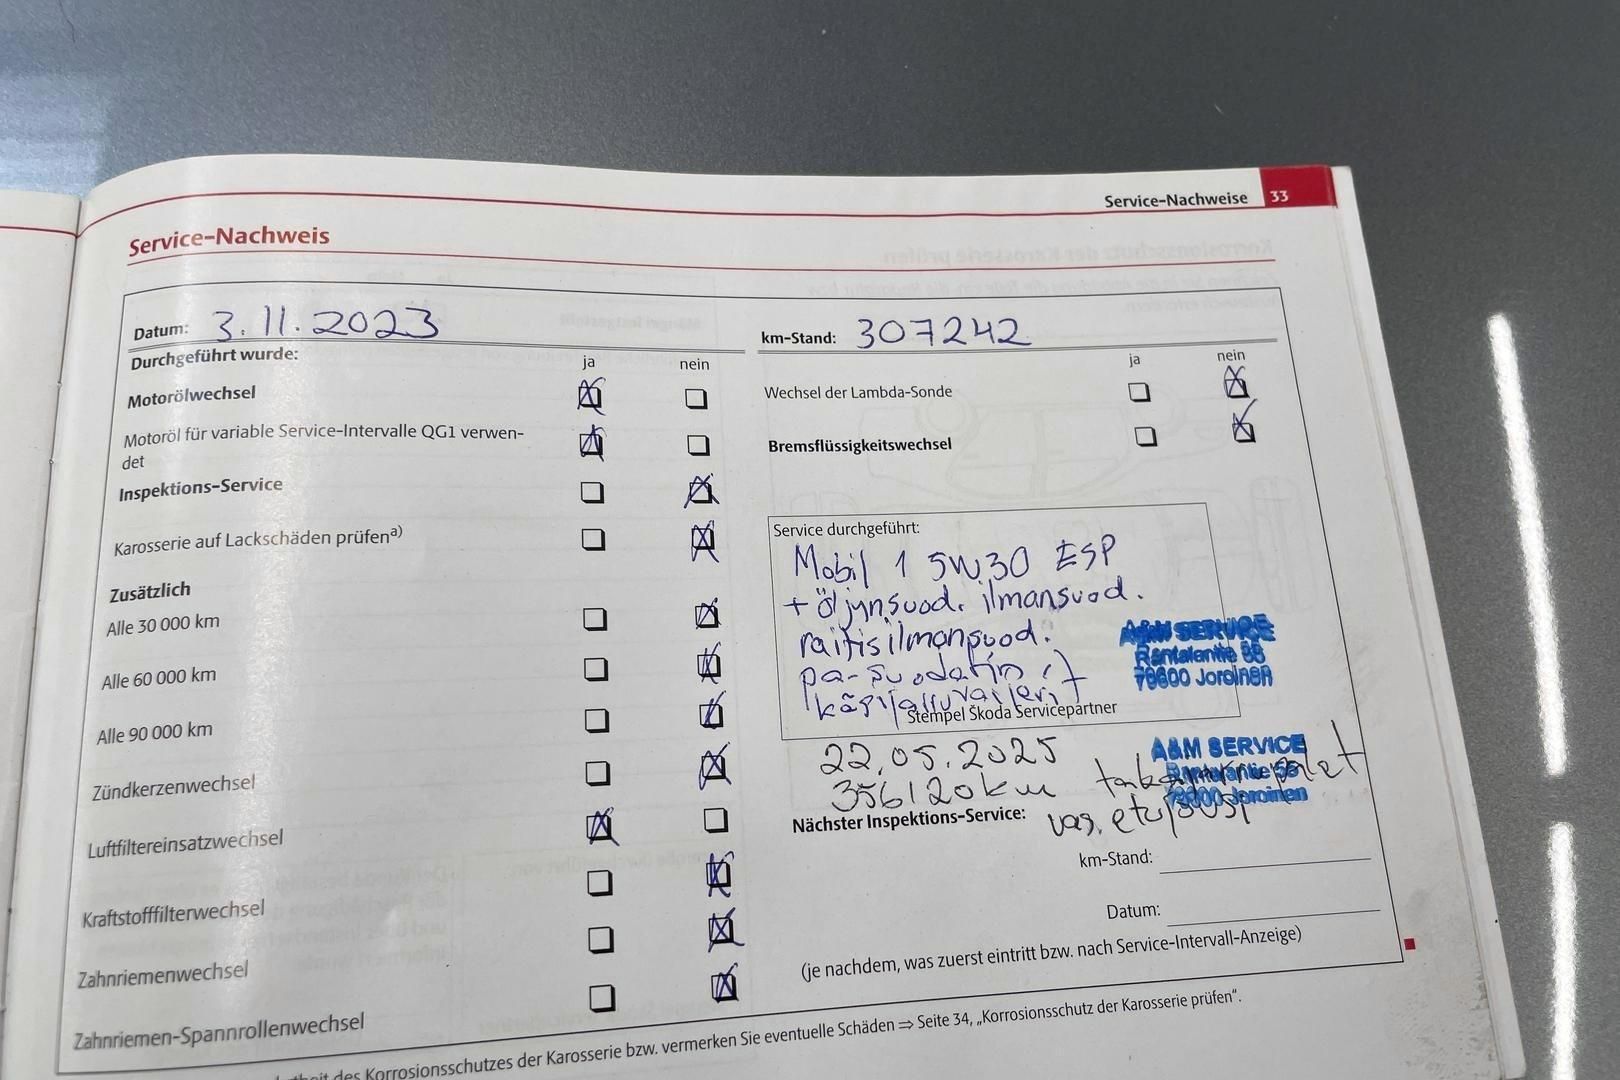 Service-Nachweise 33
Service-Nachweis
Datum: 3.11.2023
km-Stand: 307242
Durchgeführt wurde:
ja nein
Motorölwechsel
Motoröl für variable Service-Intervalle QG1 verwen-
det
Inspektions-Service
Karosserie auf Lackschäden prüfena)
Zusätzlich
Alle 30 000 km
Alle 60 000 km
Alle 90 000 km
Zündkerzenwechsel
Luftfiltereinsatzwechsel
Kraftstofffilterwechsel
Zahnriemenwechsel
Zahnriemen-Spannrollenwechsel
ja nein
Wechsel der Lambda-Sonde
Bremsflüssigkeitswechsel
Service durchgeführt:
Mobil 1 5W30 ESP
+ öljynsuod. ilmansuod.
raitisilmansuod.
pa-suodatin
Stempel Škoda Servicepartner
A&M SERVICE
Rantalantie 56
79600 Joroinen
22.05.2025
356120km
A&M SERVICE
Rantalantie 56
79600 Joroinen
vas.
Nächster Inspektions-Service:
km-Stand:
Datum:
(je nachdem, was zuerst eintritt bzw. nach Service-Intervall-Anzeige)
des Korrosionsschutzes der Karosserie bzw. vermerken Sie eventuelle Schäden ⇒ Seite 34, „Korrosionsschutz der Karosserie prüfen“.